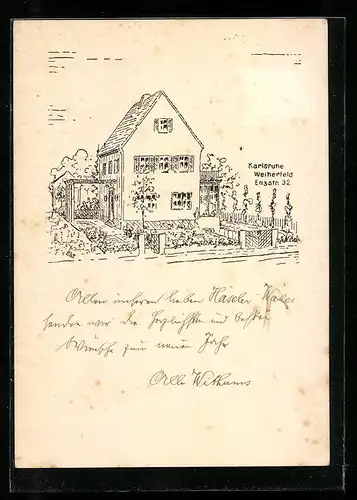 Karlsruhe
Weiherfeld
Enzstr. 32
Allen unseren lieben Haseler
senden wir die herzlichsten und besten
Wünsche zum neuen Jahr
Alle